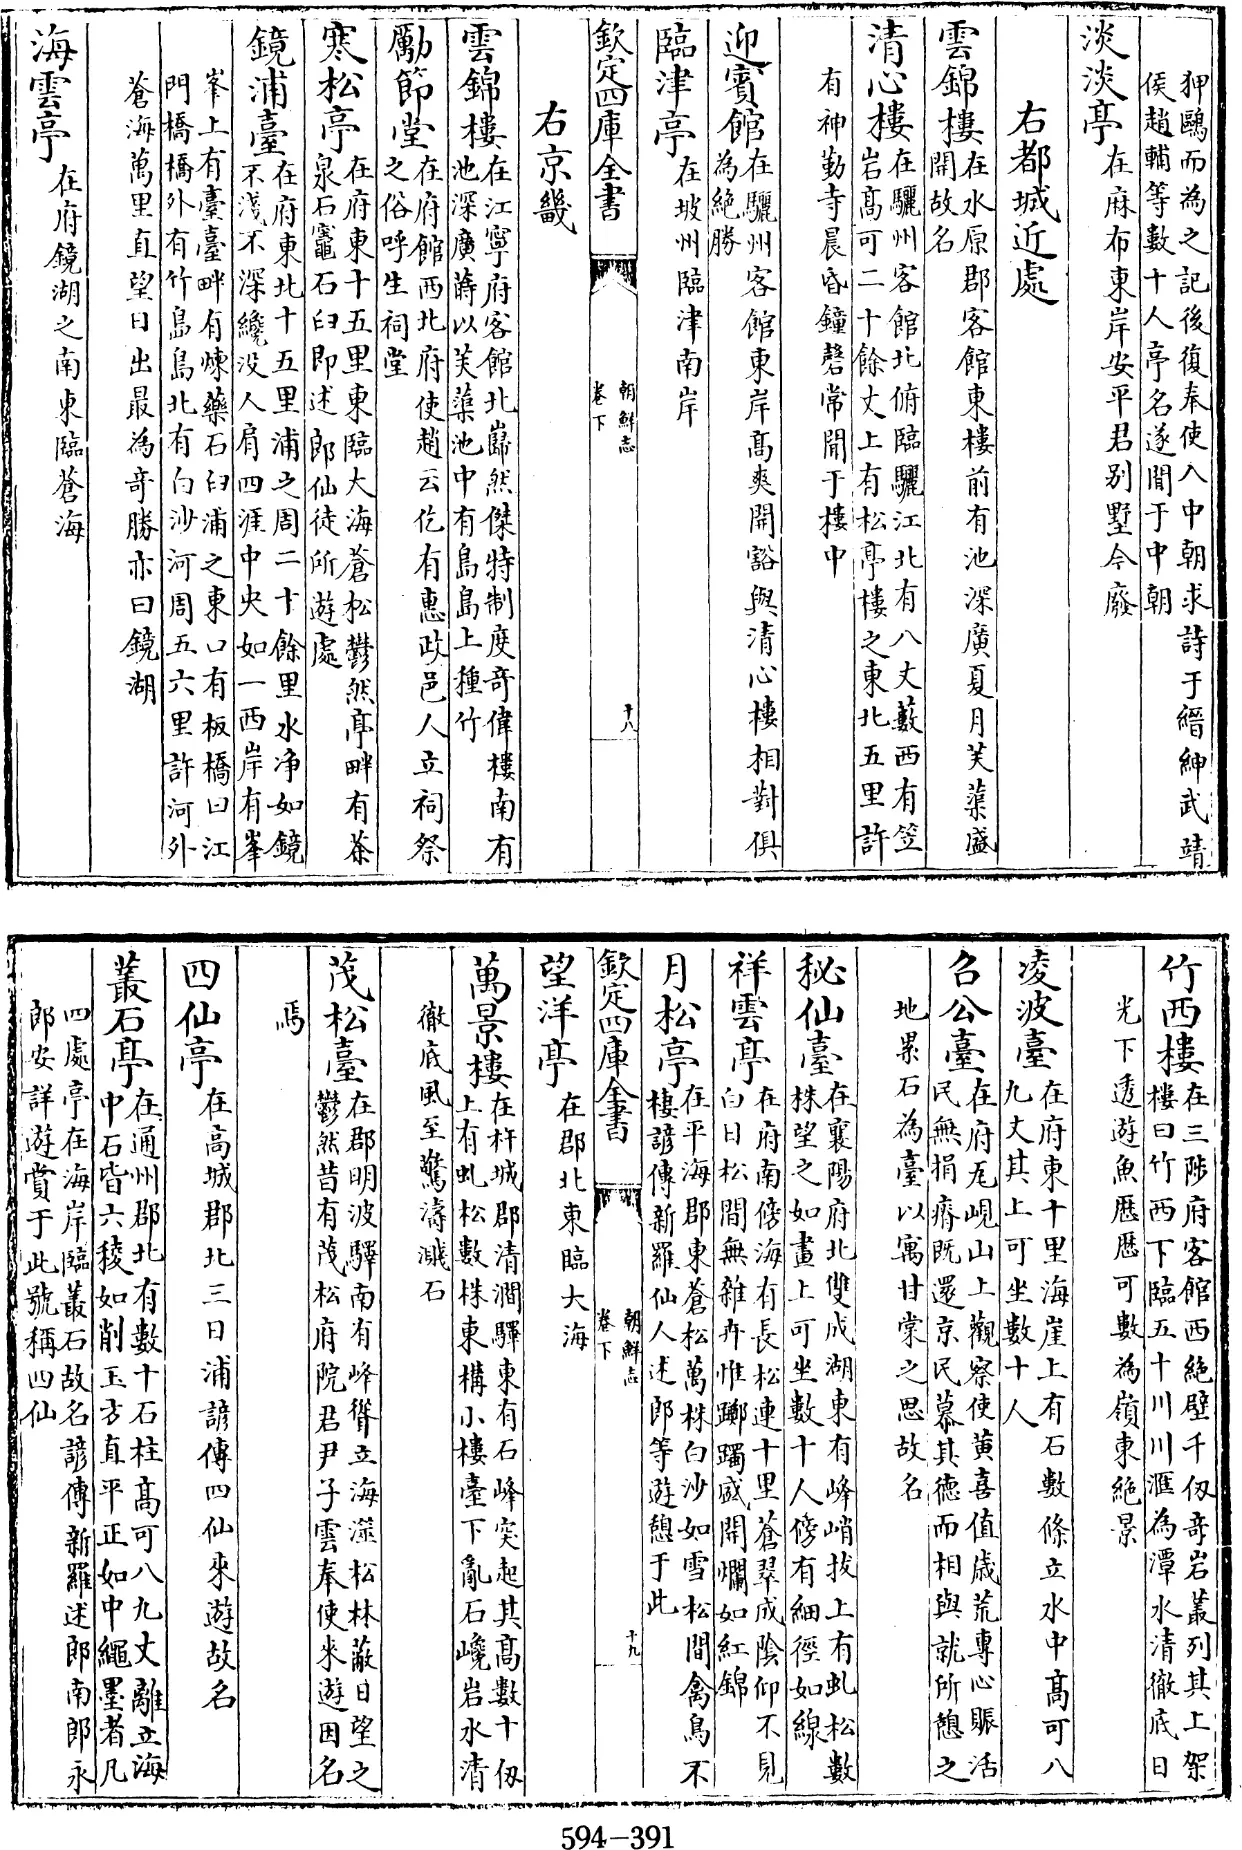 狎鷗而為之記後復奉使入中朝求詩于縉紳武靖
侯趙輔等數十人亭名遂聞于中朝
淡淡亭在麻布東岸安平君别墅今廢
右都城近處
雲錦樓在水原郡客館東樓前有池深廣夏月芙蕖盛
開故名
清心樓在驪州客館北俯臨驪江北有八丈藪西有笠
岩髙可二十餘丈上有松亭樓之東北五里許
有神勤寺晨昏鐘磬常聞于樓中
迎賓館在驪州客館東岸髙爽開豁與清心樓相對俱
為絶勝
臨津亭在坡州臨津南岸
欽定四庫全書
朝鮮志
卷下
十八
右京畿
雲錦樓在江寧府客館北巋然傑特制度竒偉樓南有
池深廣蒔以芙蕖池中有島島上種竹
勵節堂在府館西北府使趙云仡有惠政邑人立祠祭
之俗呼生祠堂
寒松亭在府東十五里東臨大海蒼松鬱然亭畔有茶
泉石竈石臼即述郎仙徒所遊處
鏡浦臺在府東北十五里浦之周二十餘里水净如鏡
不淺不深纔没人肩四涯中央如一西岸有峯
峯上有臺臺畔有煉藥石臼浦之東口有板橋曰江
門橋橋外有竹島島北有白沙河周五六里許河外
蒼海萬里直望日出最為竒勝亦曰鏡湖
海雲亭在府鏡湖之南東臨蒼海
竹西樓在三陟府客館西絶壁千仭竒岩叢列其上架
樓曰竹西下臨五十川川滙為潭水清徹底日
光下透遊魚歴歴可數為嶺東絶景
凌波臺在府東十里海崖上有石數條立水中髙可八
九丈其上可坐數十人
召公臺在府瓦峴山上觀察使黄喜值歳荒專心賑活
民無捐瘠既還京民慕其徳而相與就所憇之
地累石為臺以寓甘棠之思故名
秘仙臺在襄陽府北雙成湖東有峰峭拔上有虬松數
株望之如畫上可坐數十人傍有細徑如線
祥雲亭在府南傍海有長松連十里蒼翠成陰仰不見
白日松間無雜卉惟躑躅盛開爛如紅錦
月松亭在平海郡東蒼松萬株白沙如雪松間禽鳥不
棲諺傳新羅仙人述郎等遊憇于此
欽定四庫全書
朝鮮志
卷下
十九
望洋亭在郡北東臨大海
萬景樓在杆城郡清澗驛東有石峰突起其髙數十仭
上有虬松數株東構小樓臺下亂石巉岩水清
徹底風至驚濤濺石
茂松臺在郡明波驛南有峰聳立海澨松林蔽日望之
鬱然昔有茂松府院君尹子雲奉使來遊因名
焉
四仙亭在髙城郡北三日浦諺傳四仙來遊故名
叢石亭在通州郡北有數十石柱髙可八九丈離立海
中石皆六稜如削玉方直平正如中繩墨者凡
四處亭在海岸臨叢石故名諺傳新羅述郎南郎永
郎安詳遊賞于此號稱四仙
594-391